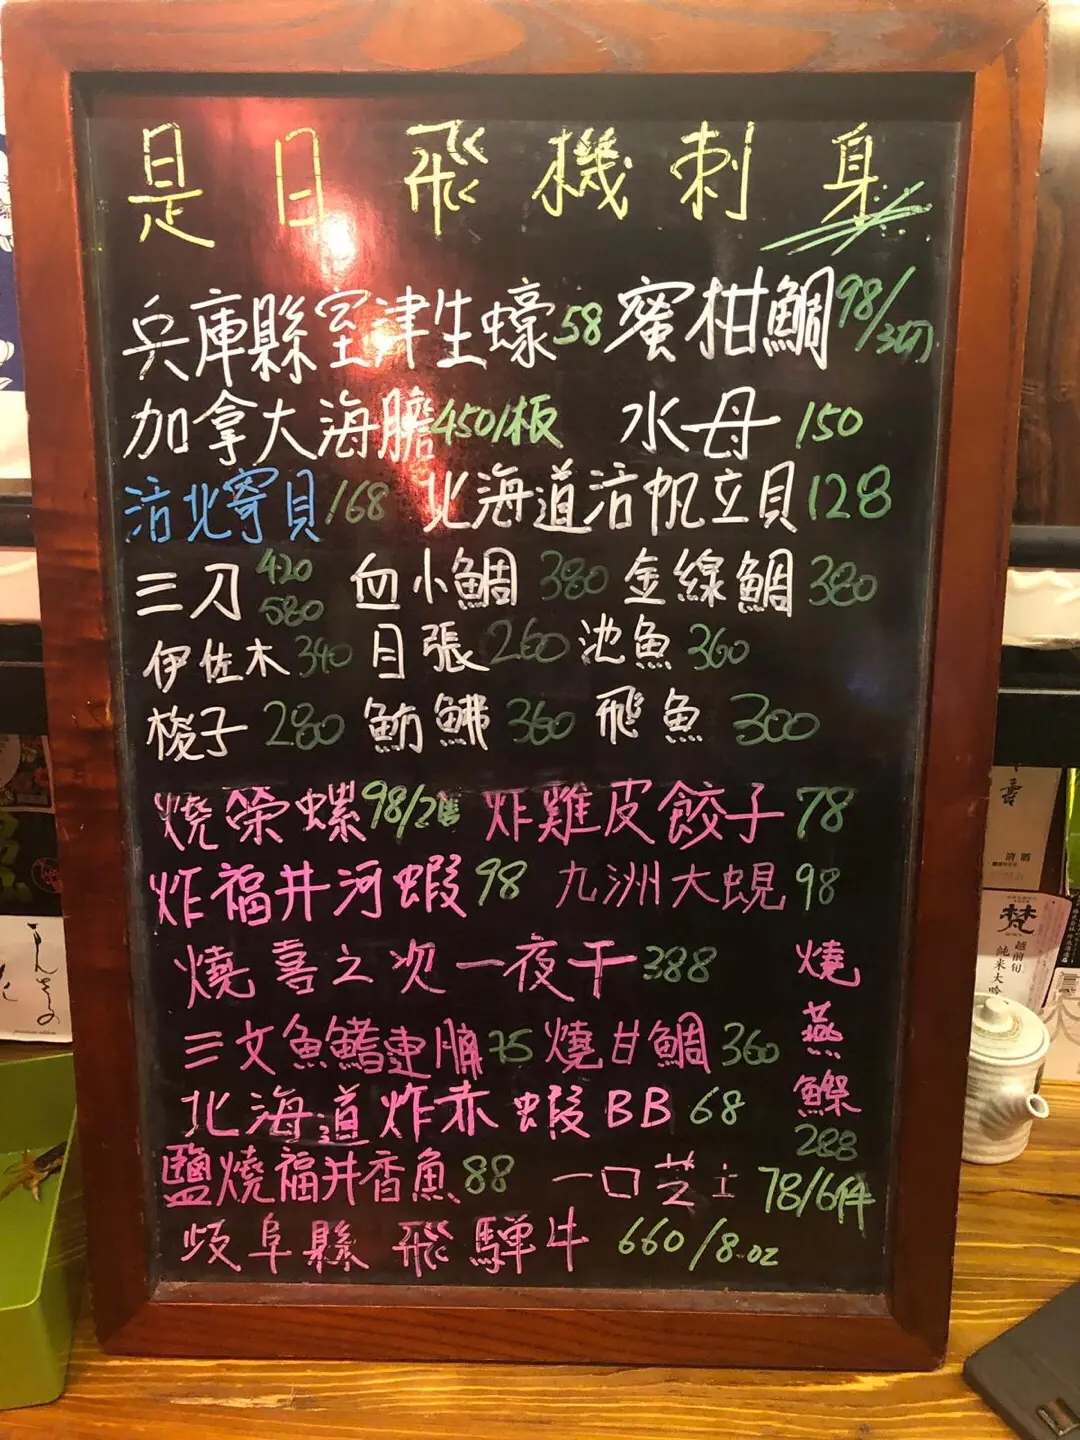 是日飛機刺身
兵庫縣室津生蠔58 蜜柑鯛98/3切
加拿大海膽450/板 水母150
活北寄貝168 北海道活帆立貝128
三刀420 580 血小鯛380 金線鯛380
伊佐木340 目張260 池魚360
梭子280 魴鮄360 飛魚300
燒榮螺98/2隻 炸雞皮餃子78
炸福井河蝦98 九洲大蜆98
燒喜之次一夜干388
三文魚鰭連腩75 燒甘鯛360
北海道炸赤蝦BB68
鹽燒福井香魚88 一口芝士78/6件
歧阜縣飛驒牛660/8oz
燒燕鰶288
壽
清酒
梵
越前旬
純米大吟